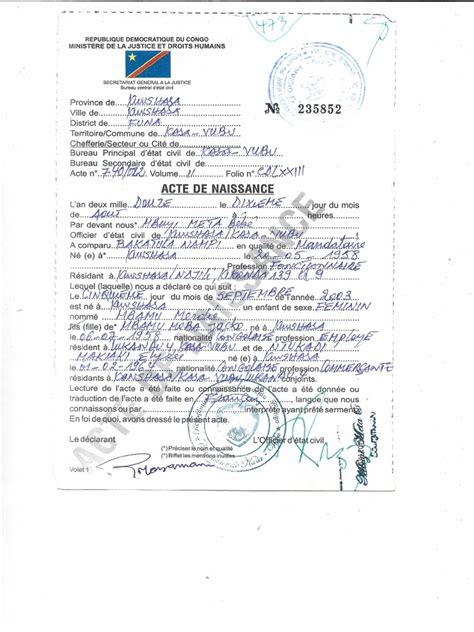 473
REPUBLIQUE DEMOCRATIQUE DU CONGO
MINISTERE DE LA JUSTICE ET DROITS HUMAINS
SECRETARIAT GENERAL A LA JUSTICE
Bureau central d'état civil
Province de KINSHASA
Ville de KINSHASA
№ 235852
District de FUNA
Territoire/Commune de KASA-VUBU
Chefferie/Secteur ou Cité de
Bureau Principal d'état civil de KASA-VUBU
Bureau Secondaire d'état civil de
Acte n° Volume II Folio n°
ACTE DE NAISSANCE
L'an deux mille DOUZE le DIXIEME jour du mois
de AOUT à heures.
Par devant nous MBUYI META
Officier d'état civil de KINSHASA/KASA-VUBU
A comparu BAKATULA NAMPI en qualité de Mandataire
Né (e) à KINSHASA 05-1958
Profession Fonctionnaire
Résidant à KINSHASA
Lequel (laquelle) nous a déclaré ce qui suit :
Le CINQUIEME jour du mois de SEPTEMBRE de l'année 2003
est né à KINSHASA un enfant FEMININ
nommé MBAMU
fils (fille) de MBAMU MOBA JOCKO né à KINSHASA
le 1958 nationalité CONGOLAISE profession EMPLOYE
résident à KASA-VUBU et de NTUKADI
MAKIAKI né (e) à KINSHASA
le 01-02- nationalité CONGOLAISE profession COMMERCANTE
résidants à KINSHASA/KASA-VUBU conjoints.
Lecture de l'acte a été faite ou connaissance de l'acte a été donnée ou
traduction de l'acte a été faite en Français langue que nous
connaissons ou par interprète ayant prêté serment
En foi de quoi, avons dressé le présent acte.
Le déclarant
L'Officier d'état civil
(*) Préciser le nom et qualité
(*) Biffer les mentions inutiles
Volet 1
ACTE DE NAISSANCE